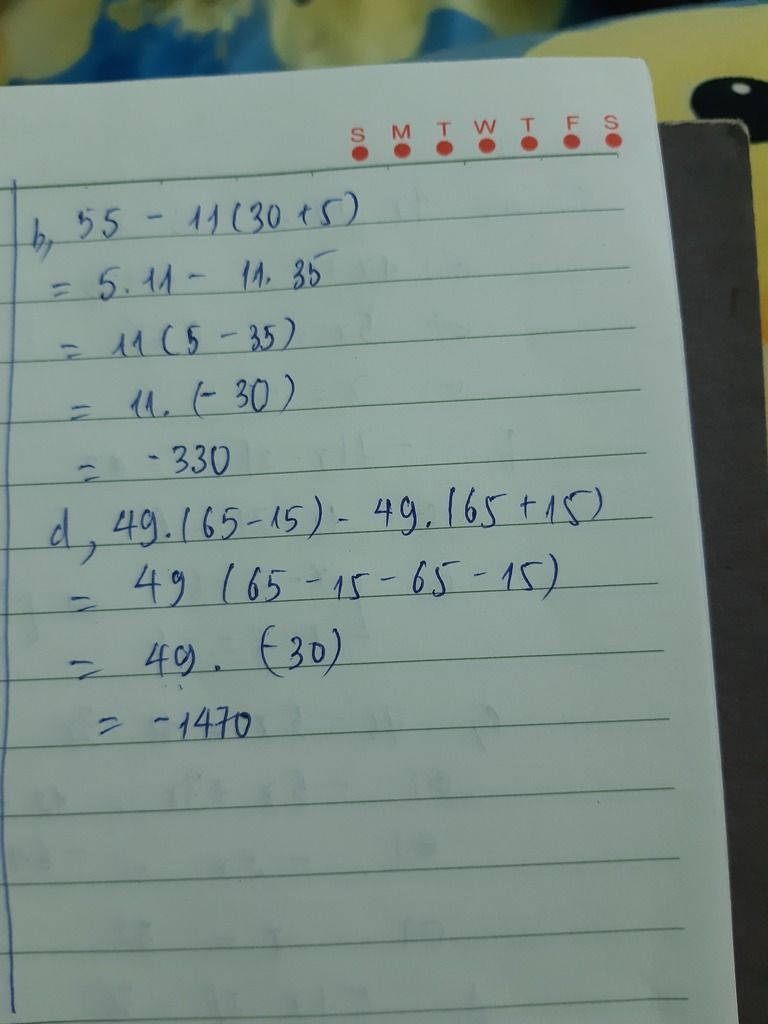 S M T W T F S
b, 55 - 11(30 + 5)
= 5.11 - 11.35
= 11(5 - 35)
= 11.(-30)
= -330
d, 49.(65-15) - 49.(65+15)
= 49 (65 - 15 - 65 - 15)
= 49. (-30)
= -1470